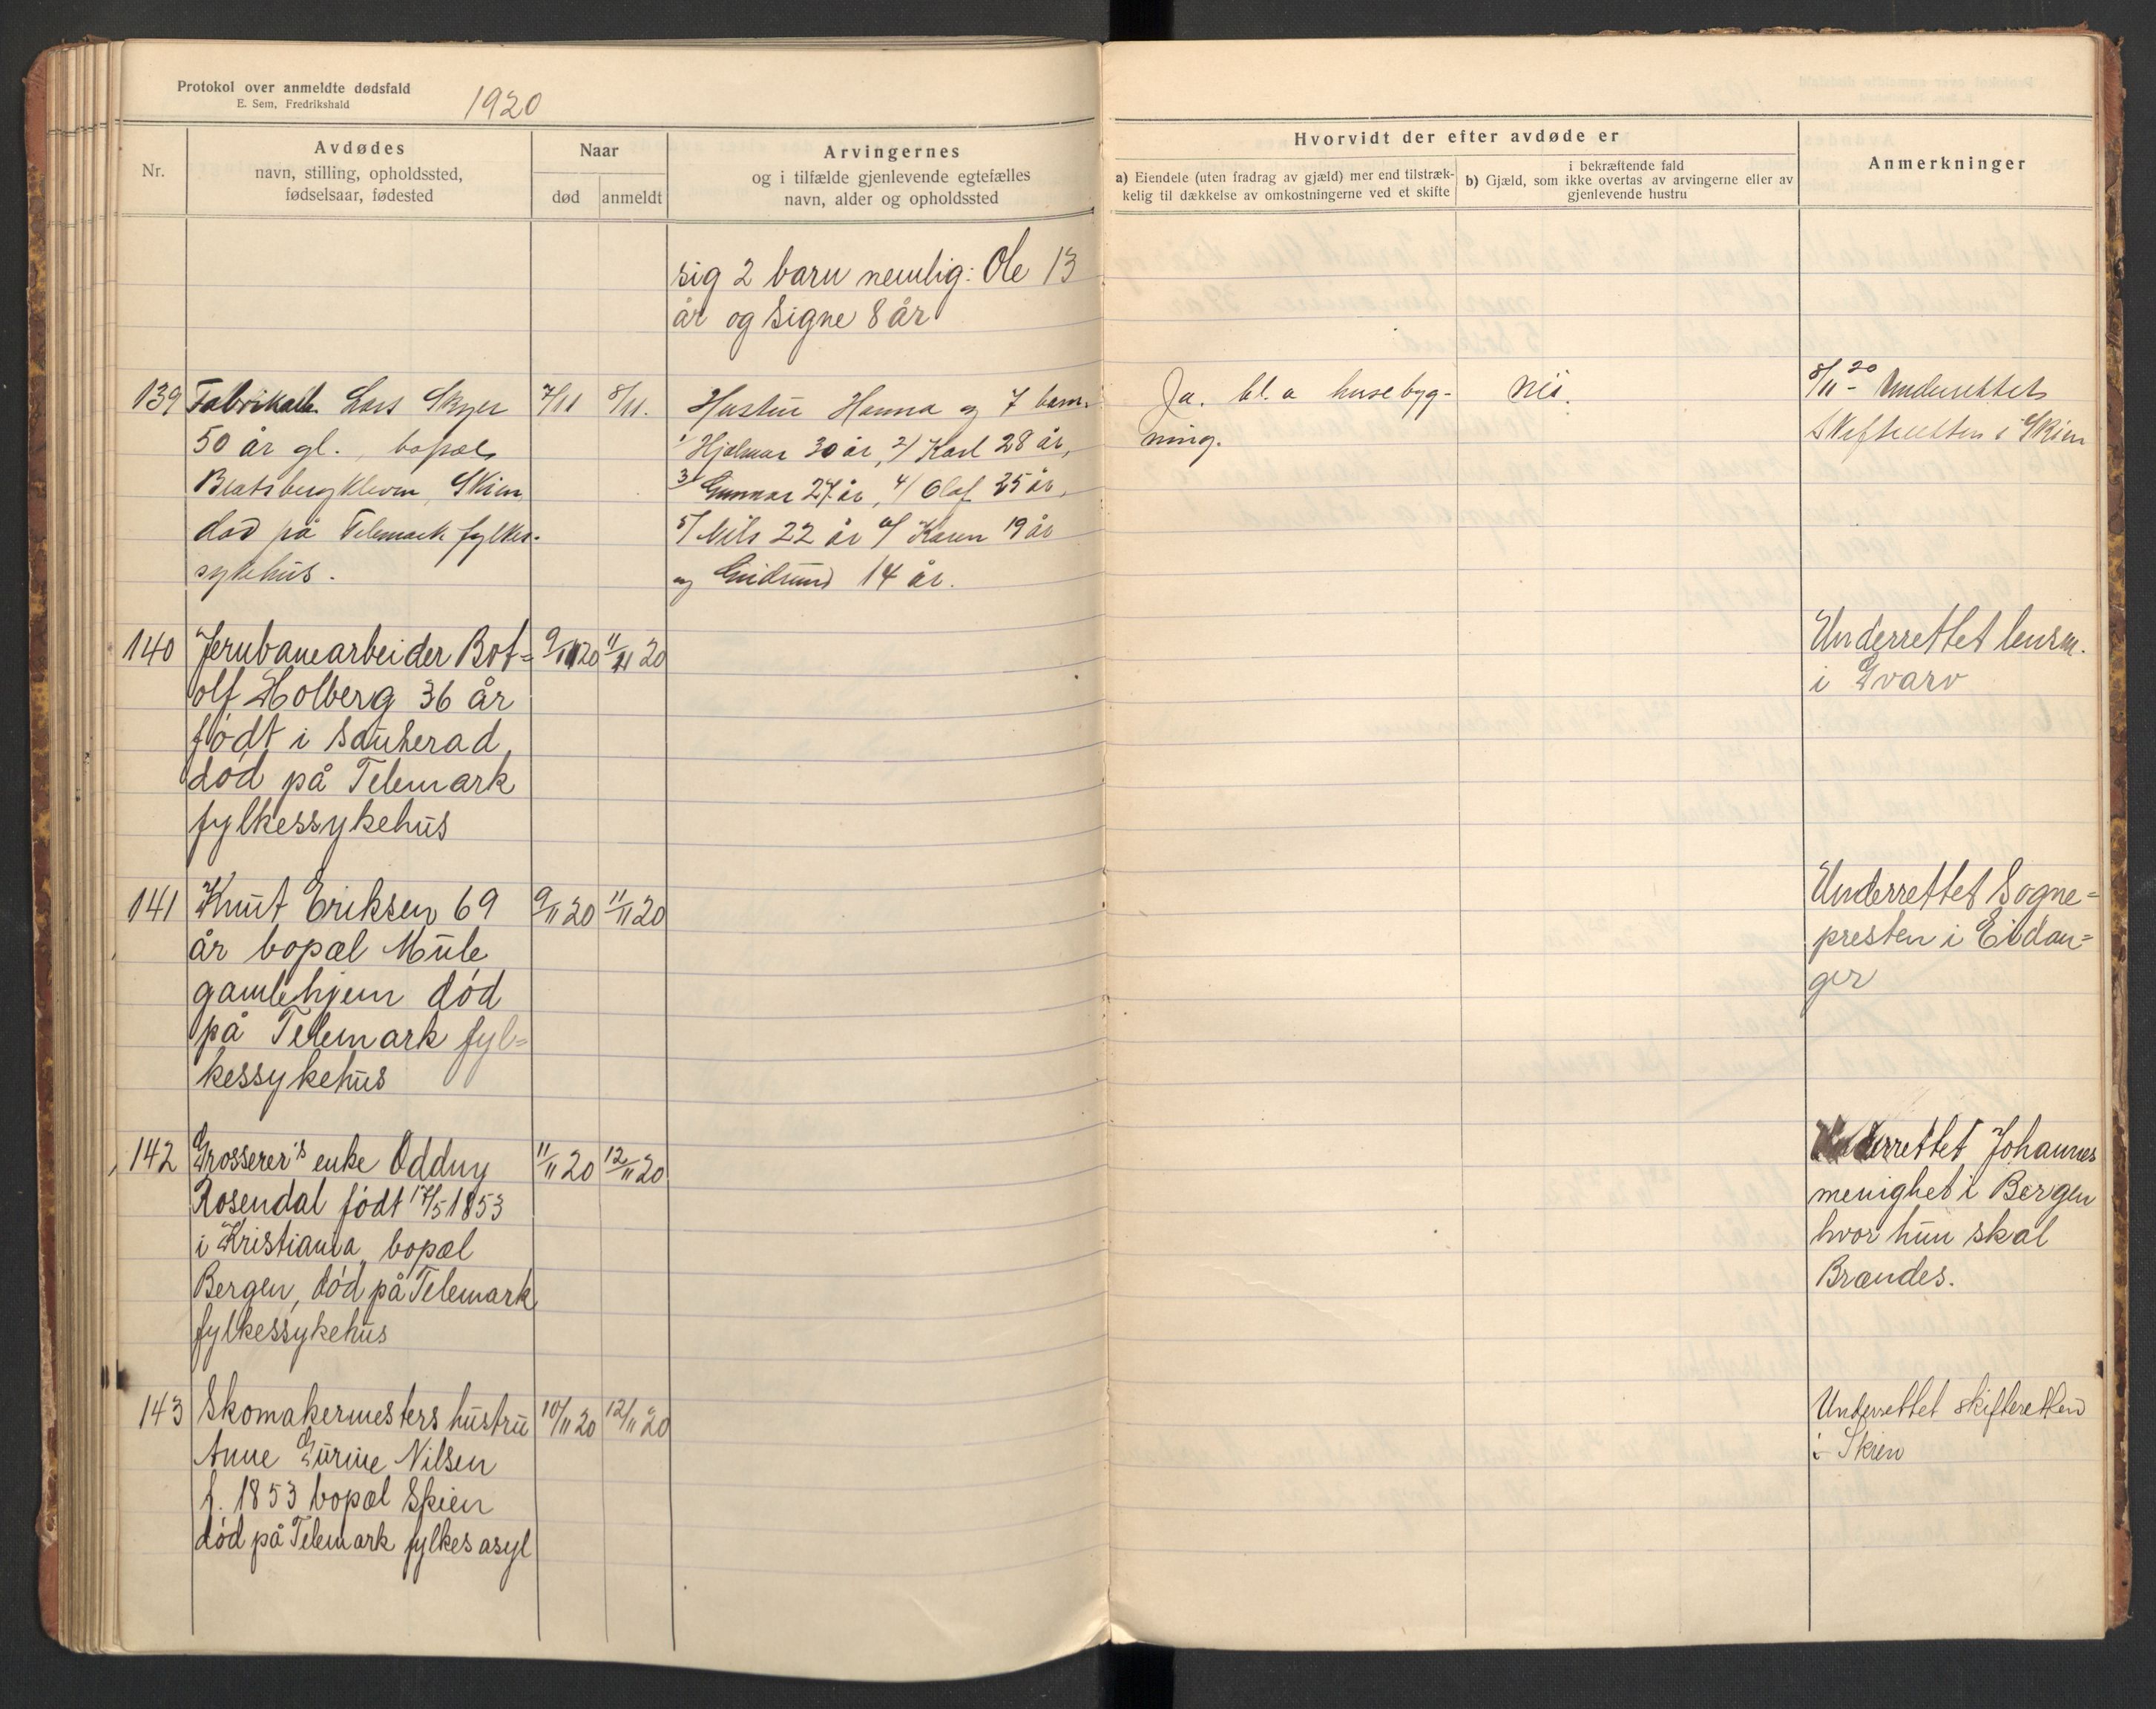 Protokol over anmeldte dødsfald
E. Sem, Fredrikshald
1920
Nr.
Avdødes
navn, stilling, opholdssted,
fødselsaar, fødested
Naar
død
anmeldt
Arvingernes
og i tilfælde gjenlevende egtefælles
navn, alder og opholdssted
Hvorvidt der efter avdøde er
a) Eiendele (uten fradrag av gjæld) mer end tilstræk-
kelig til dækkelse av omkostningerne ved et skifte
i bekræftende fald
b) Gjæld, som ikke overtas av arvingerne eller av
gjenlevende hustru
Anmerkninger
sig 2 barn nemlig: Ole 13
år og Signe 8 år
139 Lars
50 år gl., bopæl
Bratsbergkleven, Skien
død på Telemark fylkes-
sykehus.
7/11 8/11.
Hustru Hanna og 7 barn.
1/ Hjalmar 30 år, 2/ Karl 28 år,
3/ Gunnar 27 år, 4/ Olaf 25 år,
5/ Nils 22 år 6/ Karen 19 år
og Gudrund 14 år.
Ja. bl. a husebyg-
ning.
Nei.
8/11-20 Underrettet
Skifteretten i Skien
140 Jernbanearbeider Bot=
olf Holberg 36 år
født i Sauherad,
død på Telemark
fylkessykehus
9/11 20 11/11 20
Underrettet lensm.
i Gvarv
141 Knut Eriksen 69
år bopæl Mule
gamlehjem død
på Telemark fyl=
kessykehus
9/11 20 11/11 20
Underrettet Sogne=
presten i Eidan=
ger
142 Grosserer's enke Oddny
Rosendal født 17/5 1853
i Kristiania, bopæl
Bergen, død på Telemark
fylkessykehus
11/11 20 12/11 20
Underrettet Johannes
menighet i Bergen
hvor hun skal
Brændes.
143 Skomakermesters hustru
Anne Gurine Nilsen
f. 1853 bopæl Skien
død på Telemark fylkes asyl
10/11 20 12/11 20
Underrettet skifteretten
i Skien